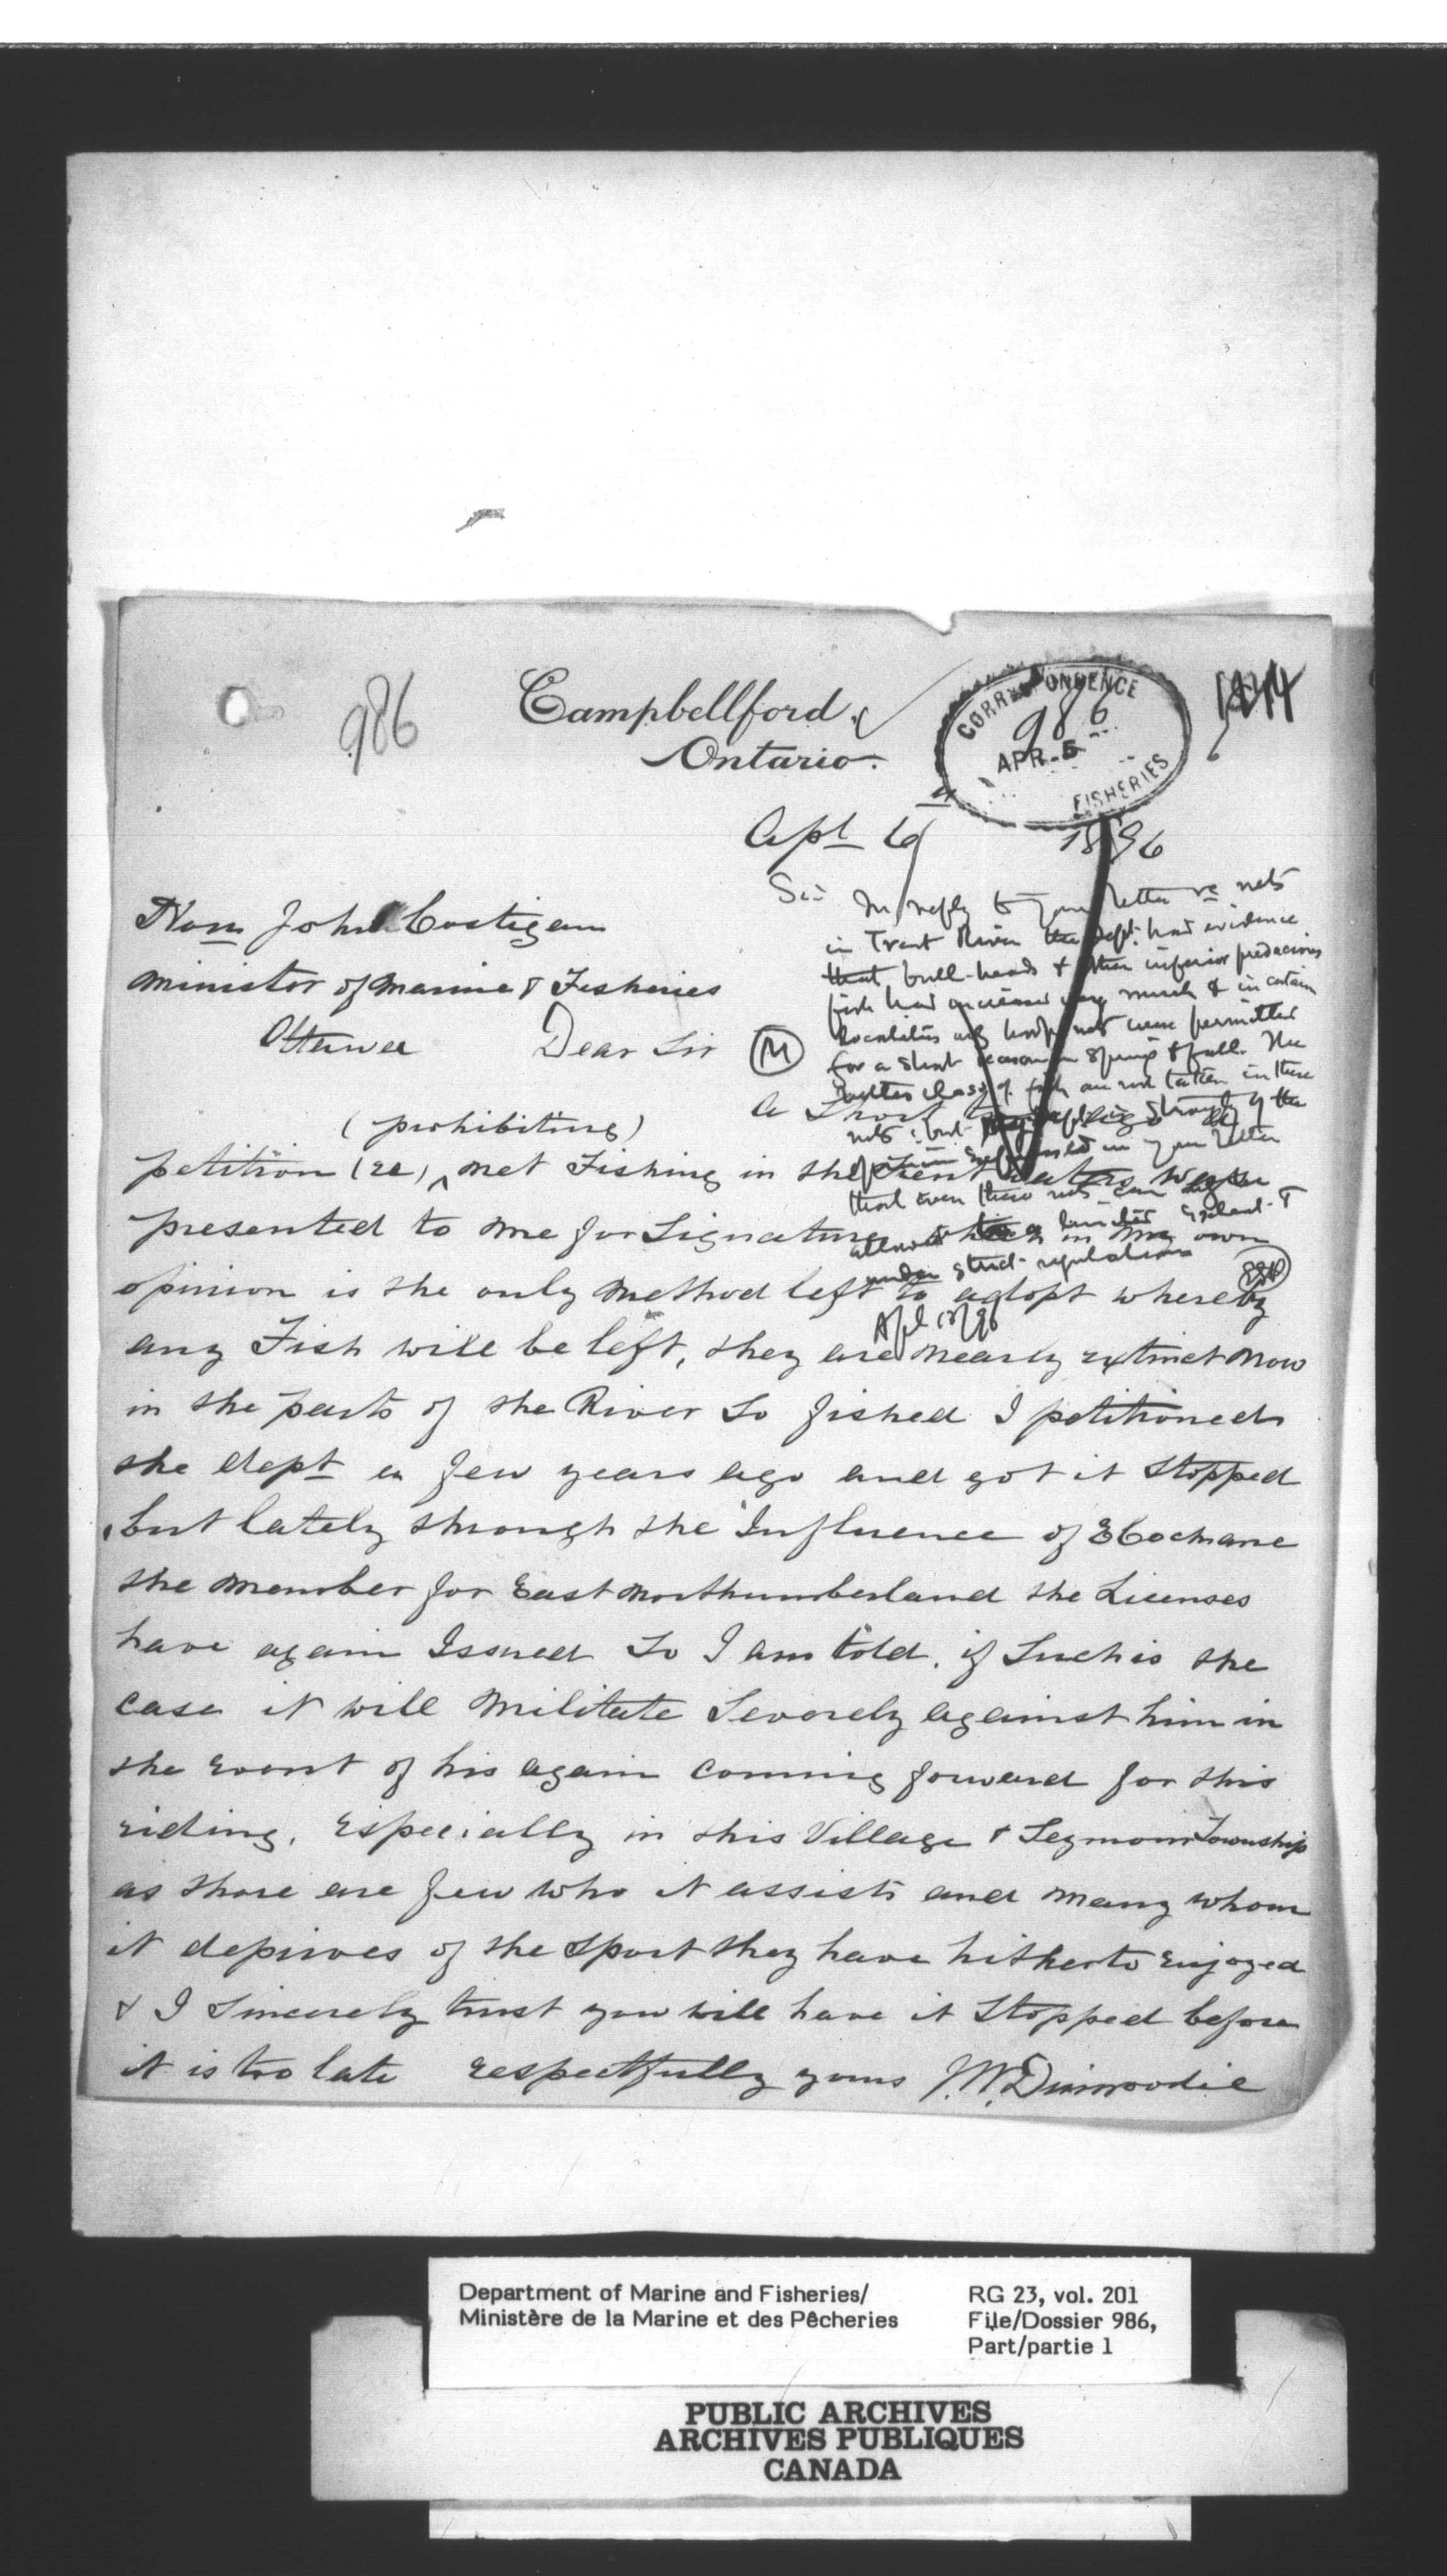 986
Campbellford,
Ontario.
CORRESPONDENCE
986
APR. 5
FISHERIES
1244
Apl 4/ 1896
Hon John Costigan
Minister of Marine & Fisheries
Ottawa Dear Sir
Sir In reply to your letter re nets
in Trent River the Dept. had evidence
that bull-heads & other inferior predacious
fish had increased very much & in certain
localities only hoop nets were permitted
for a short season in Spring & fall. The
better class of fish are not taken in these
nets, but strongly of the
opinion expressed in your letter
that even these nets can only be
allowed to a limited extent &
under strict regulations
Apl 13/96
M
A short time ago a
(prohibiting)
petition (re) ^ net Fishing in the Trent Waters was
presented to me for Signature which in my own
opinion is the only method left to adopt whereby
any Fish will be left, they are nearly extinct now
in the parts of the River so fished I petitioned
the dept a few years ago and got it stopped
but lately through the Influence of E Cochrane
the member for East Northumberland the Licenses
have again Issued So I am told. if Such is the
case it will Militate Severely against him in
the event of his again coming forward for this
riding. Especially in this Village & Seymour Township
as there are few who it assists and many whom
it deprives of the sport they have hitherto enjoyed
& I Sincerely trust you will have it Stopped before
it is too late respectfully yours J. W. Dinwoodie
Department of Marine and Fisheries/
Ministère de la Marine et des Pêcheries
RG 23, vol. 201
File/Dossier 986,
Part/partie 1
PUBLIC ARCHIVES
ARCHIVES PUBLIQUES
CANADA